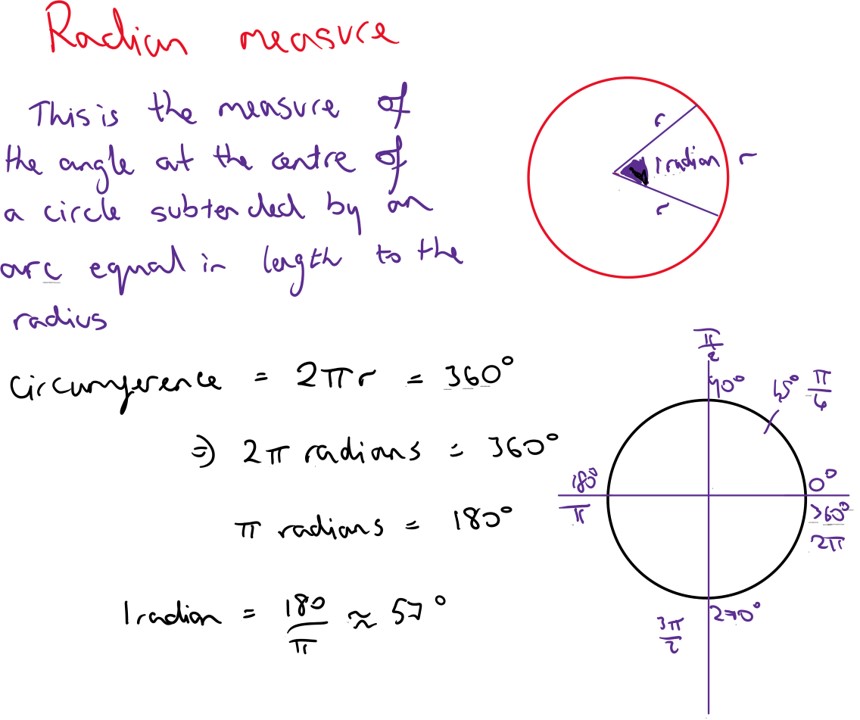 Radian measure
This is the measure of
the angle at the centre of
a circle subtended by an
arc equal in length to the
radius
r
1 radian r
r
Circumference = 2πr = 360°
⇒ 2π radians = 360°
π radians = 180°
1 radian = 180/π ≈ 57°
π/2
90°
45° π/4
180°
π
0°
360°
2π
270°
3π/2